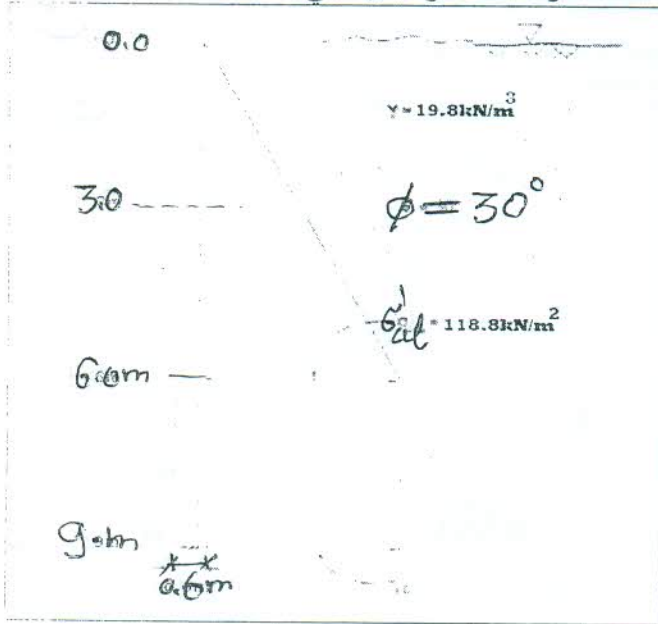 0.0
γ=19.8kN/m³
3.0
ϕ=30°
= 118.8kN/m²
6.0m
0.6m